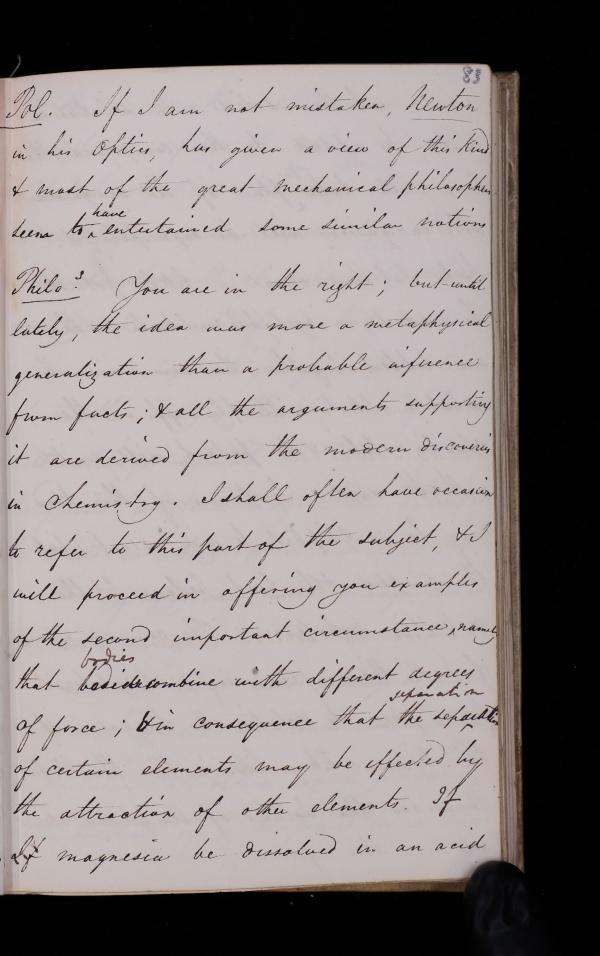 83
Pol. If I am not mistaken, Newton
in his Optics, has given a view of this kind
& most of the great mechanical philosophers
seem to have entertained some similar notions
Philo³. You are in the right; but until
lately, the idea was more a metaphysical
generalization than a probable inference
from facts; & all the arguments supporting
it are derived from the modern discoveries
in Chemistry. I shall often have occasion
to refer to this part of the subject, & I
will proceed in offering you examples
of the second important circumstance, namely
bodies
that combine with different degrees
separation
of force; & in consequence that the separation
of certain elements may be effected by
the attraction of other elements. If
If magnesia be dissolved in an acid